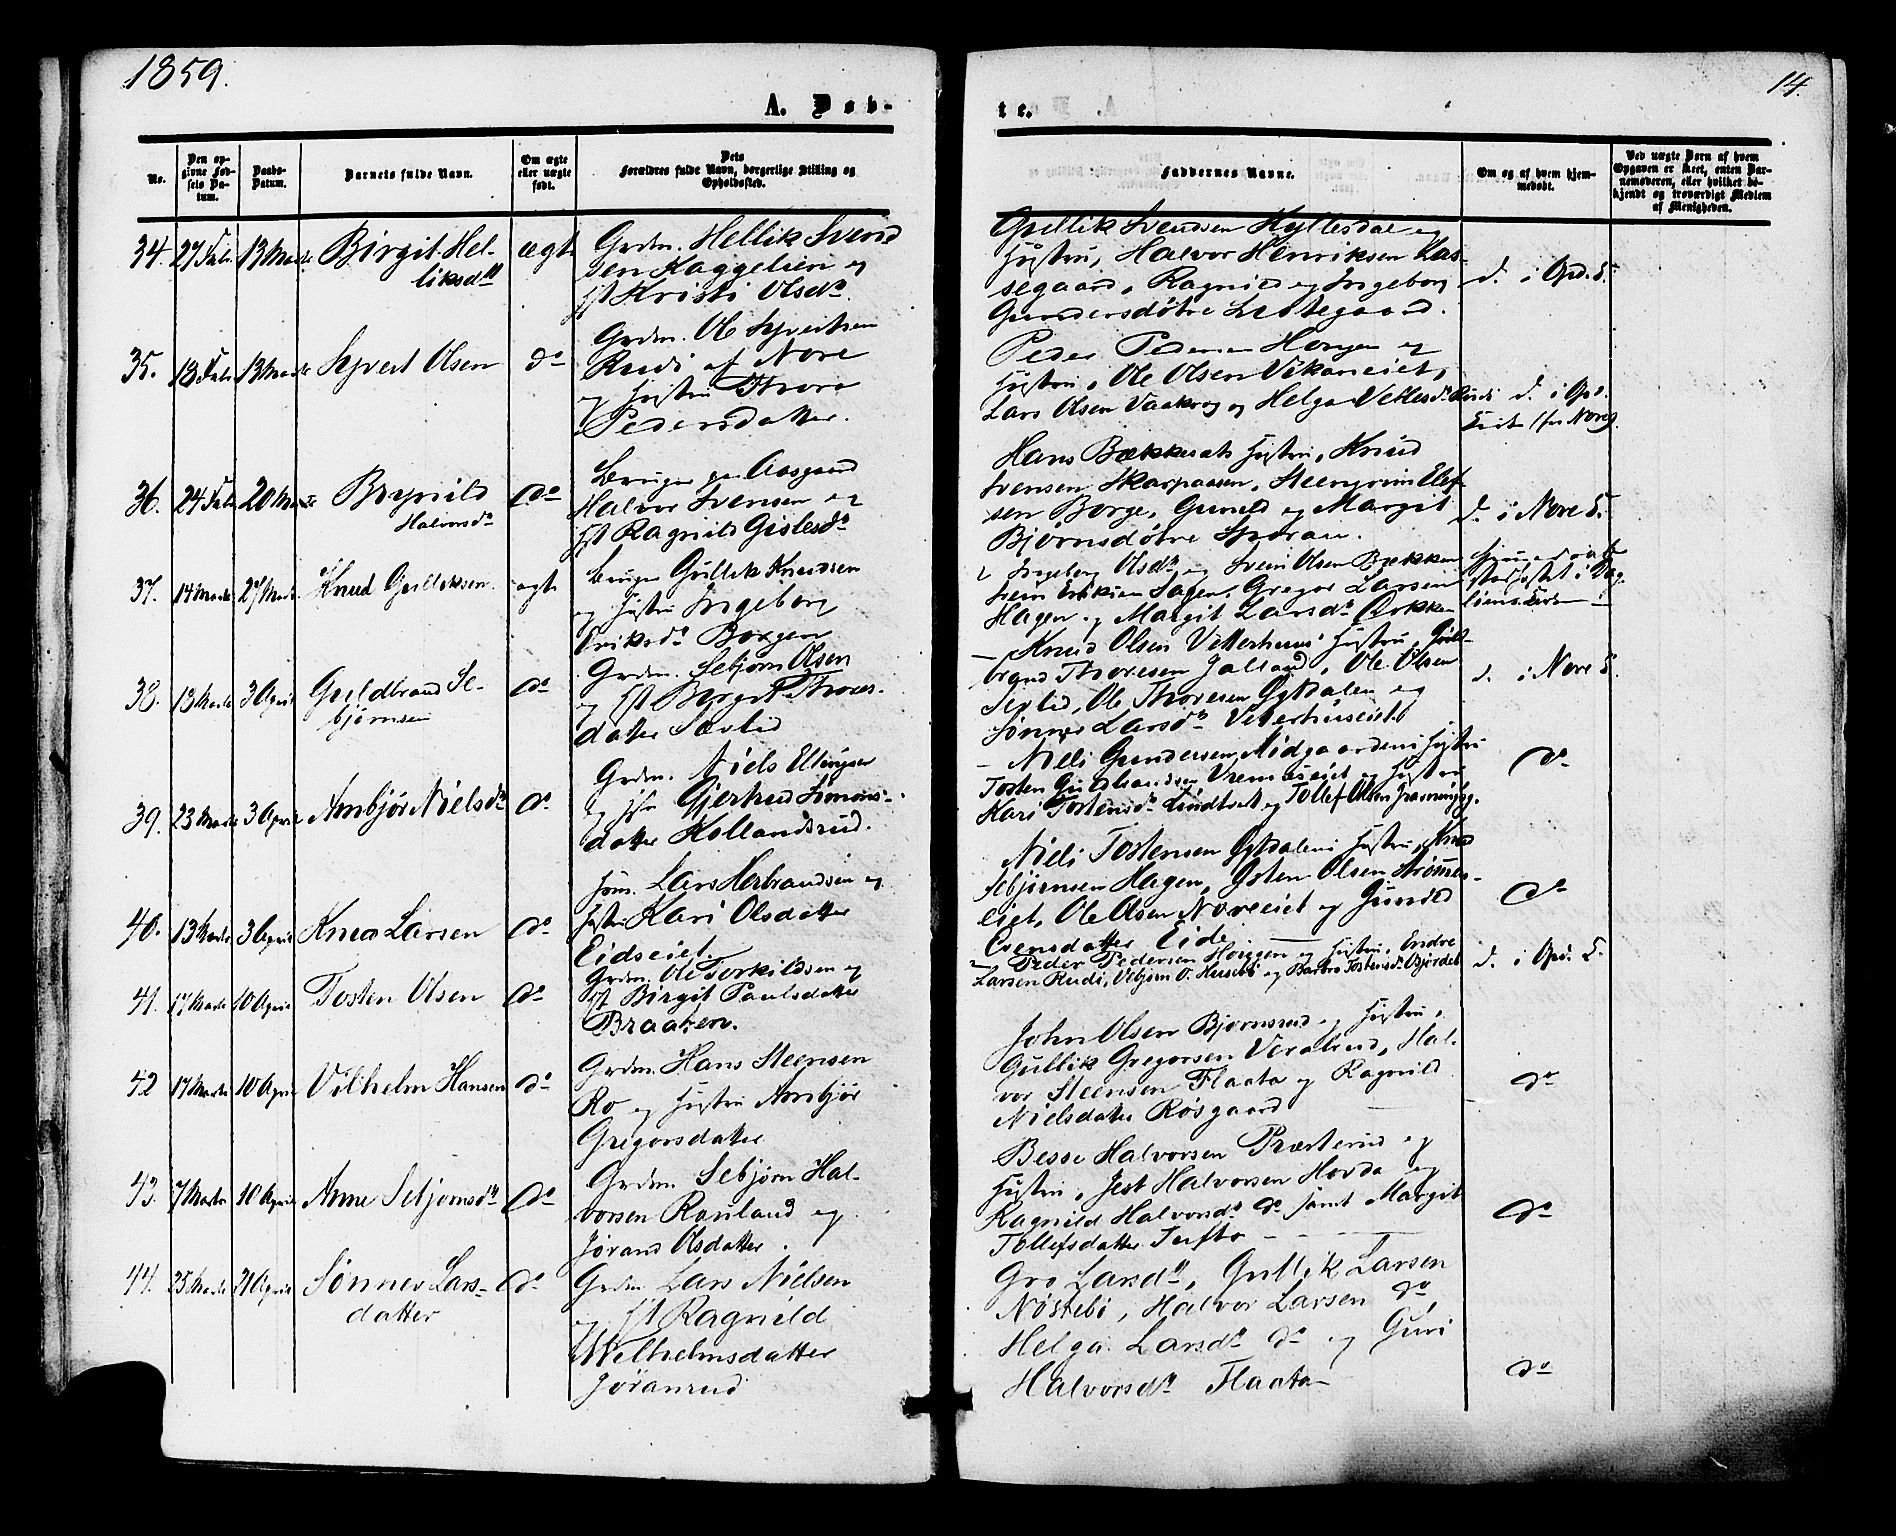 1859.
14.
A. Døb-
te.
No.
Den op-
givne Fød-
sels Da-
tum.
Daabs-
Datum.
Barnets fulde Navn.
Om ægte
eller uægte
født.
Dets
Forældres fulde Navn, borgerlige Stilling og
Opholdssted.
Faddernes Navne.
Om og af hvem hjem-
medøbt.
Ved uægte Børn af hvem
Opgaven er skeet, enten Bar-
nemoderen, eller hvilket be-
kjendt og troværdigt Medlem
af Menigheden.
34. 27 Febr 13 Marts Birgit Hel-
liksdtr
ægte
Grdm. Hellik Svend
sen Kaggelien og
Kristi Olsdr.
Gullik Svendsen Hyllesdal og
Hustru, Halvor Henriksen Las-
segaard, Ragnild og Ingeborg
Gundersdøtre Lustegaard.
d. i Opd. K.
35. 13 Febr 13 Marts Syvert Olsen
do
Grdm. Ole Syvertsen
Rudi af Nore
og Hustru Thora
Pedersdatter.
Peder Pedersen Horgen og
Hustru, Ole Olsen Vikaneiet,
Lars Olsen Vaakrog og Helga Vetlesdr Rudi
d. i Opd.
Kirke (for Nore)
36. 24 Febr 20 Marts Bergnild
Halvorsdr
do
Bruger paa Aasgaard
Halvor Svensen og
Ragnild Gislesdr
Hans Bækkeseth Hustru, Knud
Svensen Skarpaasen, Steengrim Elef-
sen Borge, Gunild og Margit
Bjørnsdøtre Sporan.
d. i Nore K.
37. 14 Marts 27 Marts Knud Gulliksen
ægte
Bruger Gullik Knudsen
og Hustru Ingeborg
Eriksdr Borgen
Ingeborg Olsdr og Svein Olsen Bækken
Svein Eriksen Sagen, Gregor Larsen
Hagen og Margit Larsdr Bækken
38. 13 Marts 3 April Guldbrand Se-
bjørnsen
do
Grdm. Sebjørn Olsen
og Birgit Thores-
datter Sevlid
Knud Olsen Vetterhuus Hustru, Guld-
brand Thoresen Jalland, Ole Olsen
Sevlid, Ole Thoresen Gykdalen og
Sønnev Larsdr Vetterhuseiet
d. i Nore K.
39. 23 Marts 3 April Ambjør Nielsdr
do
Grdm. Niels Ellingsen
og Gjertrud Simons-
datter Kollandsrud.
Niels Gundersen Midgaarden Hustru
Tosten Guldbrandsen Vremseiet og Hustru
Kari Tostensdr og Tollef Olsen
do
40. 13 Marts 3 April Knud Larsen
do
Hum. Lars Herbrandsen og
Hustru Kari Olsdatter
Eidseiet.
Niels Tostensen Gykdalen Hustru, Knud
Sebjørnsen Hagen, Josten Olsen Strømes-
eiet, Ole Olsen Noreeiet og Gunild
Evensdatter Eide
do
41. 17 Marts 10 April Tosten Olsen
do
Grdm. Ole Torkildsen og
Birgit Paulsdatter
Braaten.
Peder Pedersen Horgen og Hustru, Endre
Larsen Rudi, Vebjørn O. Husebø og Barbro Tostensdr Bjørdal
d. i Opd. K.
42 17 Marts 10 April Vilhelm Hansen
do
Grdm. Hans Steensen
Ro og Hustru Ambjør
Gregorsdatter
John Olsen Bjørnsrud og Hustru,
Gullik Gregorsen Veralrud, Hal-
vor Steensen Flaata og Ragnild
Nielsdatter Røsgaard
do
43. 7 Marts 10 April Anne Sebjørnsdr
do
Grdm. Sebjørn Hal-
vorsen Rauland og
Jørand Olsdatter.
Besse Halvorsen Præsterud og
Hustru, Jest Halvorsen Hovda og
Ragnild Halvorsdr do samt Margit
Tollefsdatter Tufto
do
44. 25 Marts 21 April Sønnev Lars-
datter
do
Grdm. Lars Nielsen
og Ragnild
Wilhelmsdatter
Jøranrud
Gro Larsdtr, Gullik Larsen
Nøstebø, Halvor Larsen do,
Helga Larsdr do og Guri
Halvorsdr Flaata
do